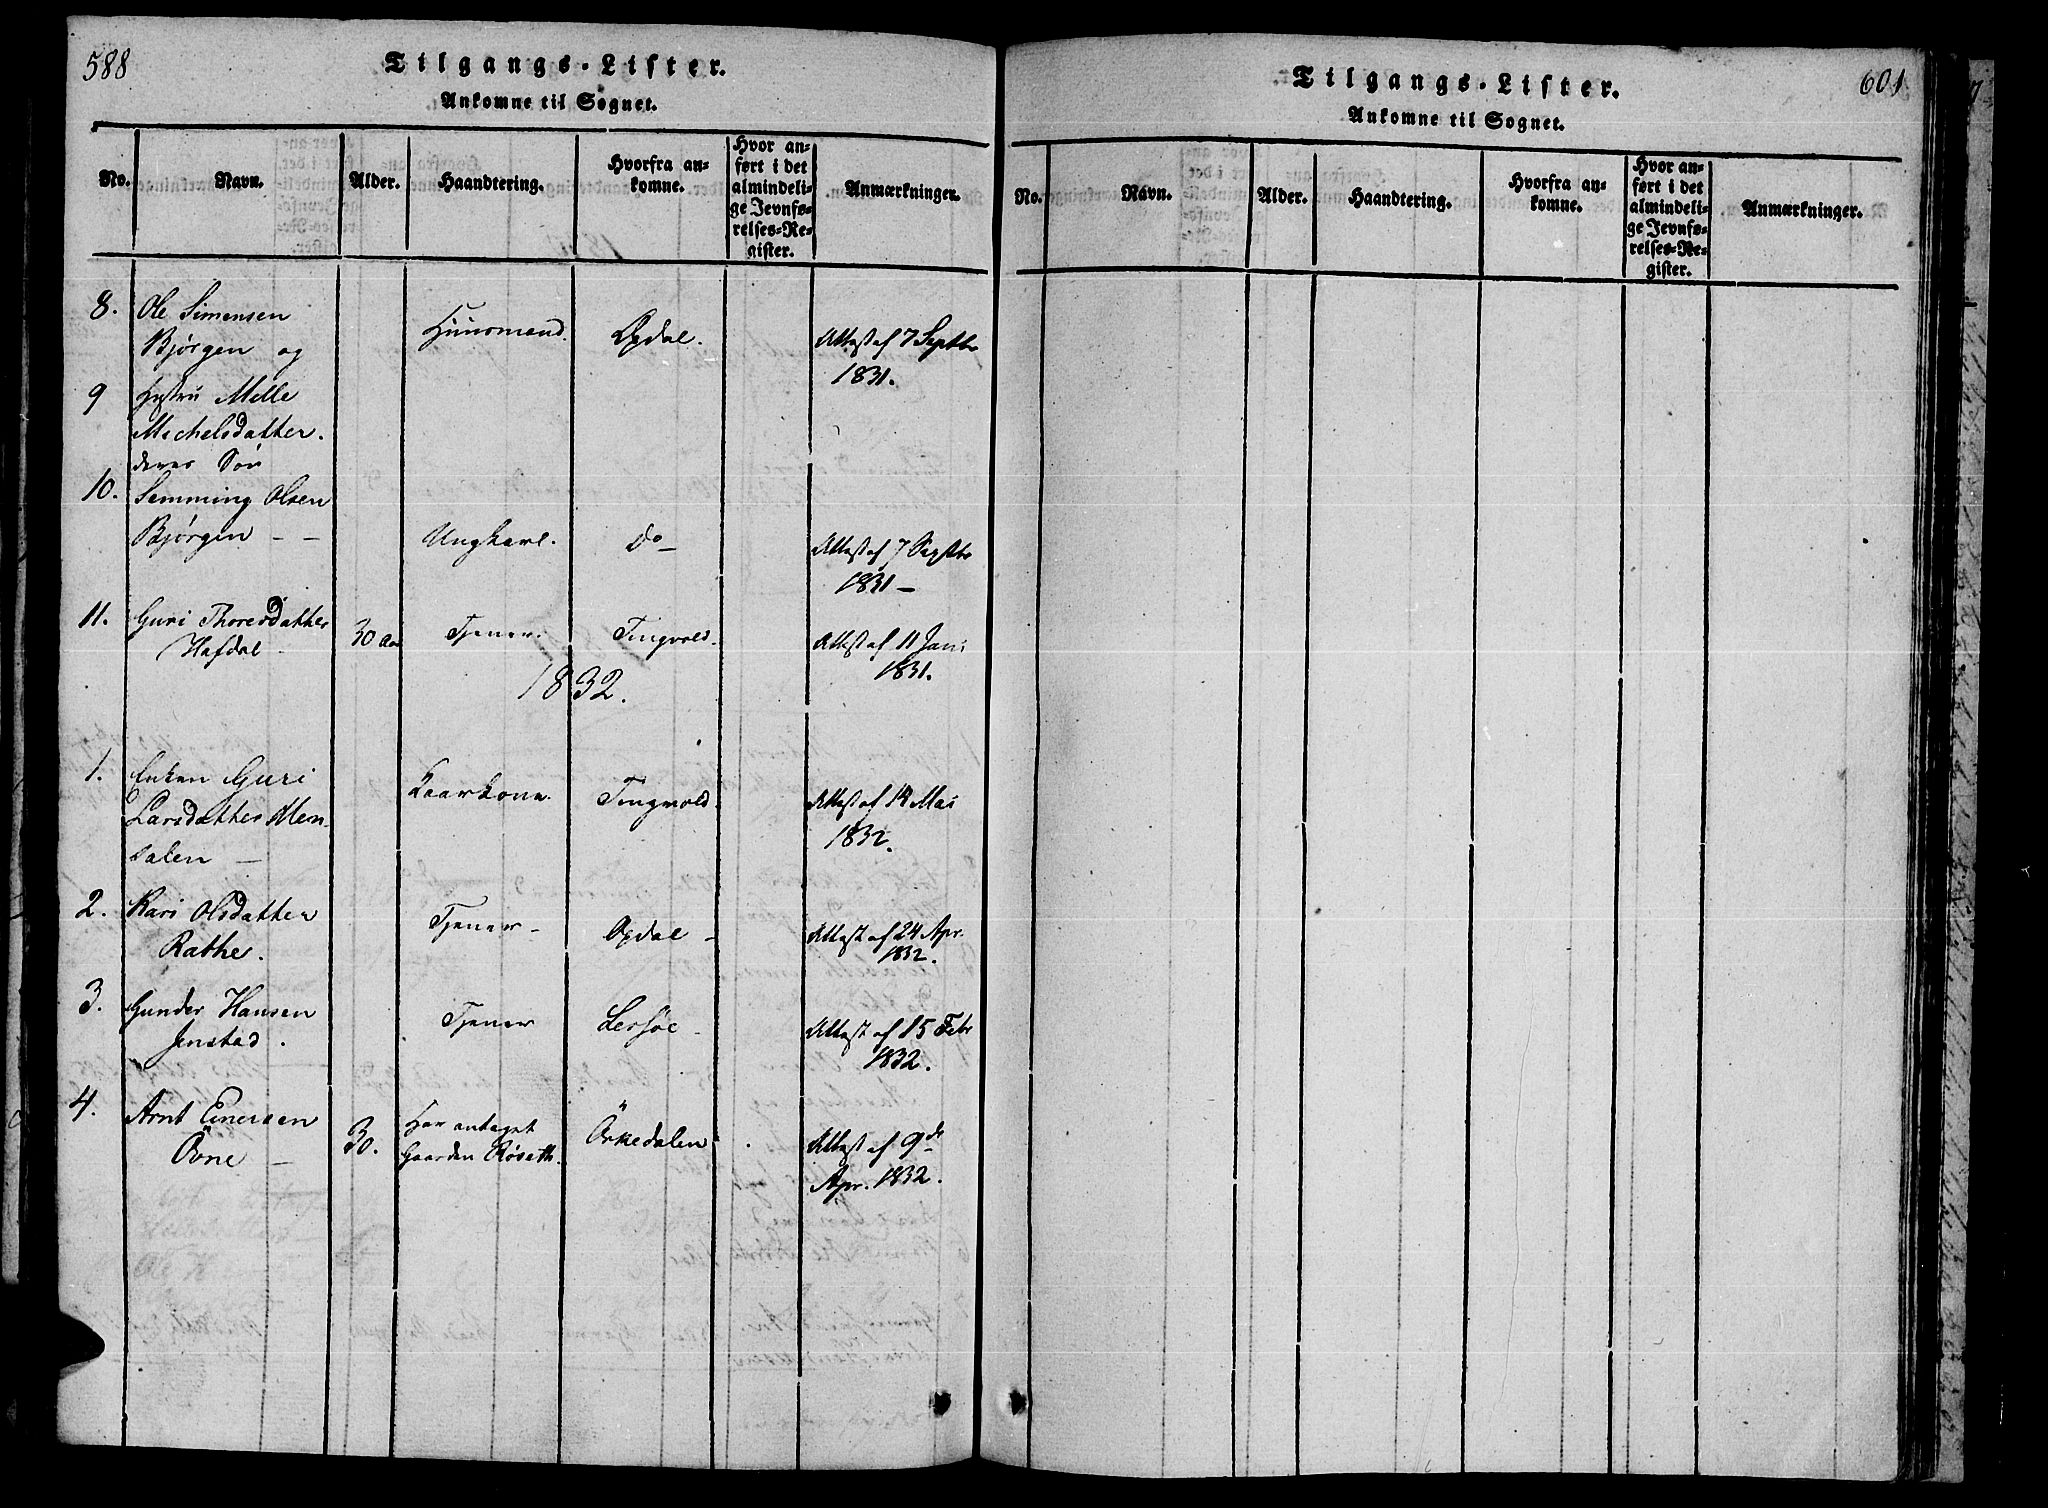 588
Tilgangs-Lister.
Ankomne til Sognet.
No. Navn. Alder. Haandtering. Hvorfra ankomne. Hvor anført i det almindelige Jevnførelses-Register. Anmærkninger.
8. Ole Simensen
Bjørgen og Huusmand. Opdal. Attest af 7 Septbr
1831.
9 Hustru Mille
Michelsdatter.
deres Søn
10. Semming Olsen
Bjørgen – – Ungkarl. Do – Attest af 7 Septbr
1831 –
11. Guri Thoresdatter 30 Aar Tjener. Tingvold. Attest af 11 Juni
Hafdal – 1831.
1832.
1. Enken Guri Kaarkone. Tingvold. Attest af 14 Mai
Larsdatter Mem- 1832.
salen –
2. Kari Olsdatter Tjener – Opdal – Attest af 24 Apr.
Rathe. 1832.
3. Gunder Hansen Tjener Lessøe – Attest af 15 Febr
Jenstad. 1832.
4. Arnt Einersen 30. Har antaget Örkedalen Attest af 9de
Övne – Gaarden Röseth. Apr. 1832.
Tilgangs-Lister.
601
Ankomne til Sognet.
No. Navn. Alder. Haandtering. Hvorfra ankomne. Hvor anført i det almindelige Jevnførelses-Register. Anmærkninger.